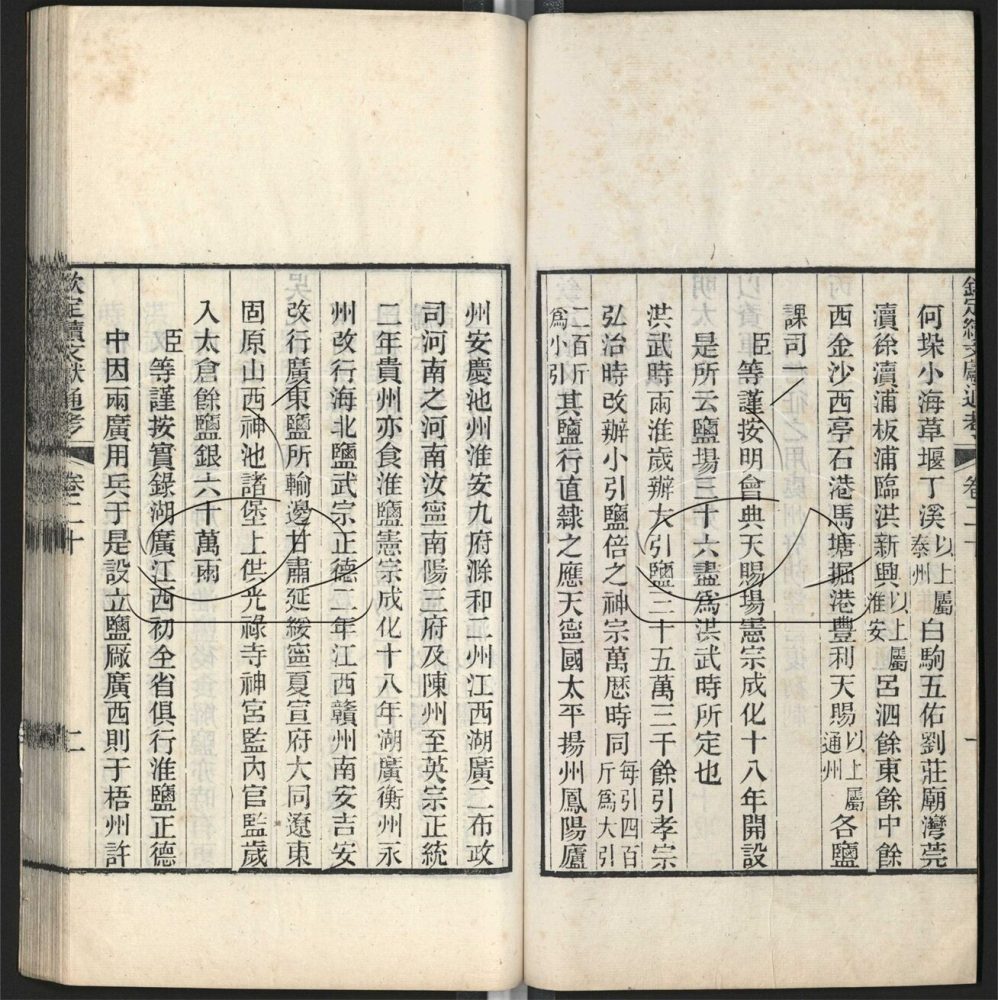 欽定續文獻通考
卷二十
一
何垛小海草堰丁溪以上屬泰州白駒五佑劉莊廟灣莞
瀆徐瀆浦板浦臨洪新興以上屬淮安呂泗餘東餘中餘
西金沙西亭石港馬塘掘港豐利天賜以上屬通州各鹽
課司一
臣等謹按明會典天賜場憲宗成化十八年開設
是所云鹽場三十六盡爲洪武時所定也
洪武時兩淮歲辦大引鹽三十五萬三千餘引孝宗
弘治時改辦小引鹽倍之神宗萬歷時同每引四百斤爲大引
二百斤爲小引其鹽行直隸之應天寧國太平揚州鳳陽廬
州安慶池州淮安九府滁和二州江西湖廣二布政
司河南之河南汝寧南陽三府及陳州至英宗正統
二年貴州亦食淮鹽憲宗成化十八年湖廣衡州永
州改行海北鹽武宗正德二年江西贛州南安吉安
改行廣東鹽所輸邊甘肅延綏寧夏宣府大同遼東
固原山西神池諸堡上供光祿寺神宮監內官監歲
入太倉餘鹽銀六十萬兩
臣等謹按實錄湖廣江西初全省俱行淮鹽正德
中因兩廣用兵于是設立鹽厰廣西則于梧州許
欽定續文獻通考
卷二十
二